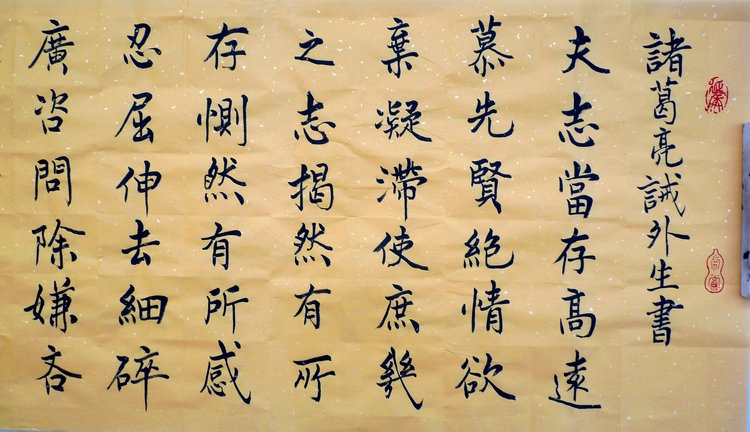 諸葛亮誡外生書
夫志當存高遠
慕先賢絶情欲
棄凝滯使庶幾
之志揭然有所
存惻然有所感
忍屈伸去細碎
廣咨問除嫌吝